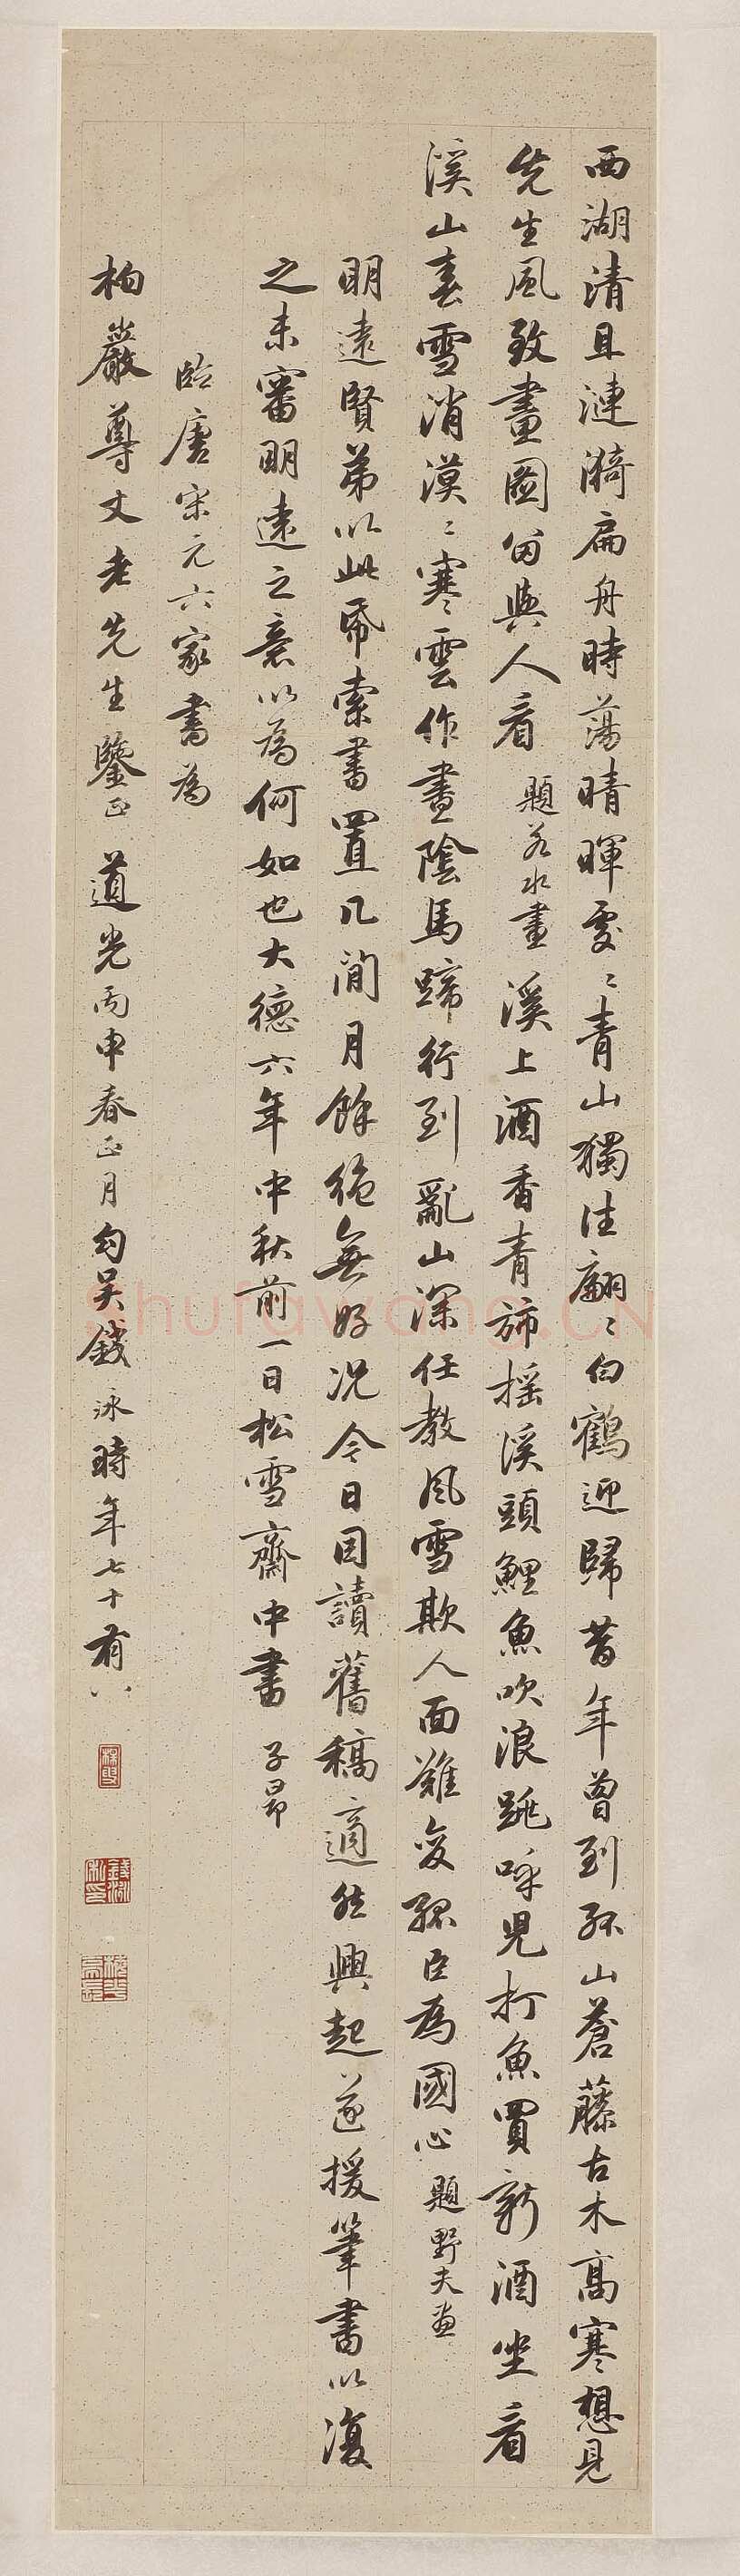 西湖清且漣漪扁舟時蕩晴暉處〻青山獨往翩〻白鶴迎歸昔年曾到孤山蒼藤古木高寒想見
先生風致畫圖留與人看 題若水畫 溪上酒香青旆搖溪頭鯉魚吹浪跳呼兒打魚買新酒坐看
溪山春雪消漠〻寒雲作晝陰馬蹄行到亂山深任教風雪欺人面難變孤臣為國心 題野夫畫
明遠賢弟以此帋索書置几間月餘絶無好況今日因讀舊稿適然興起遂援筆書以復
之未審明遠之意以為何如也大德六年中秋前一日松雪齋中書 子昂
臨唐宋元六家書為
柏巖尊丈老先生鑒正 道光丙申春正月勾吳錢泳時年七十有八
錢泳
shufawang.CN